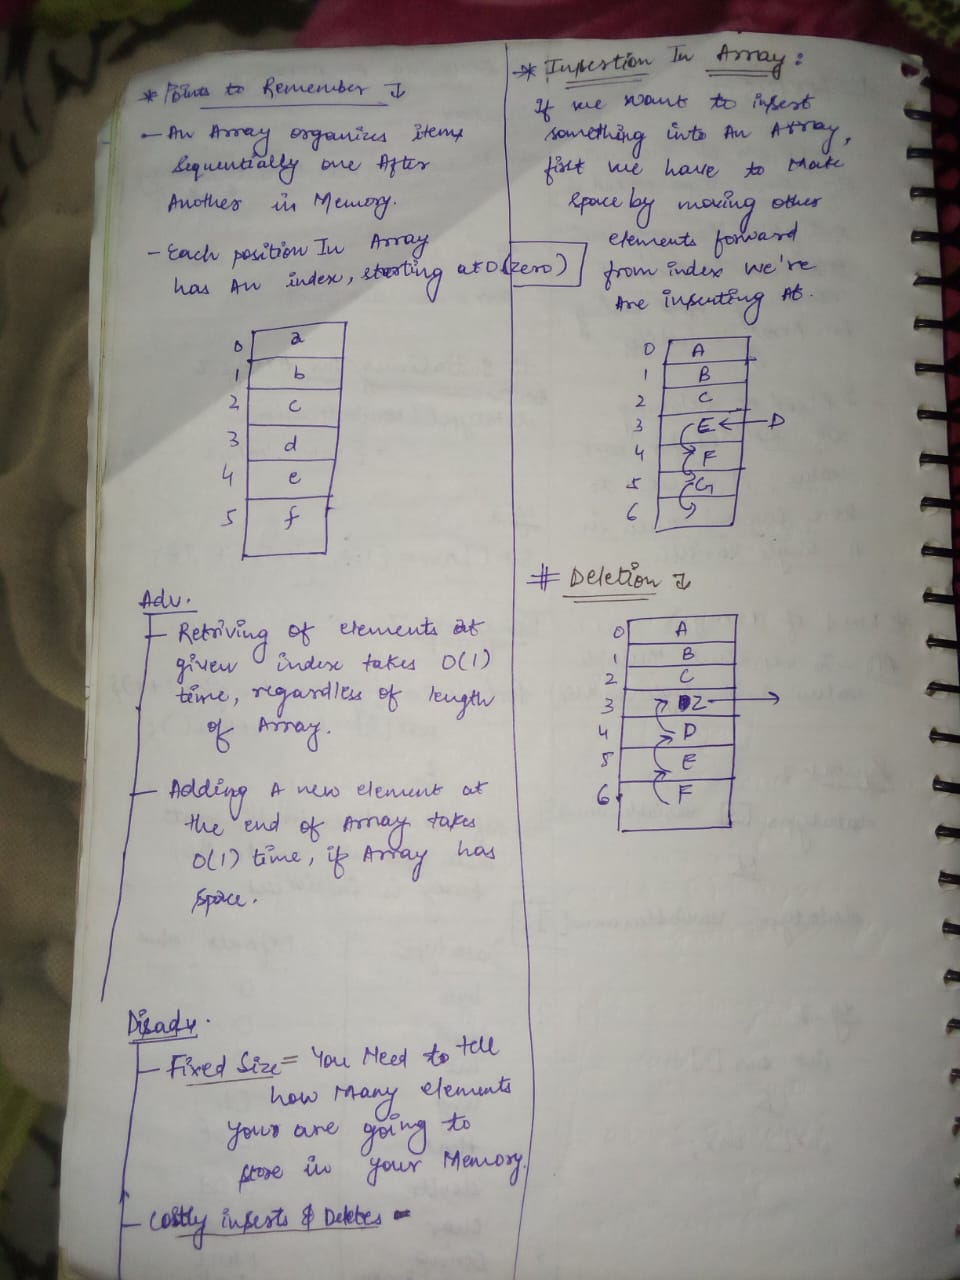 * Points to Remember ↓
- An Array organizes items
Sequentially one After
Another in Memory.
- Each position In Array
has An index, starting at 0 (zero)
0 a
1 b
2 c
3 d
4 e
5 f
Adv.
- Retriving of elements at
given index takes O(1)
time, regardless of length
of Array.
- Adding A new element at
the end of Array takes
O(1) time, if Array has
space.
Disadv.
- Fixed Size = You Need to tell
how Many elements
your are going to
store in your Memory.
- Costly inserts & Deletes -
* Insertion In Array :
If we want to insert
something into An Array,
first we have to Make
space by moving other
elements forward
from index we're
Are inserting At.
0 A
1 B
2 C
3 E ← D
4 F
5 G
6
# Deletion ↓
0 A
1 B
2 C
3 Z →
4 D
5 E
6 F